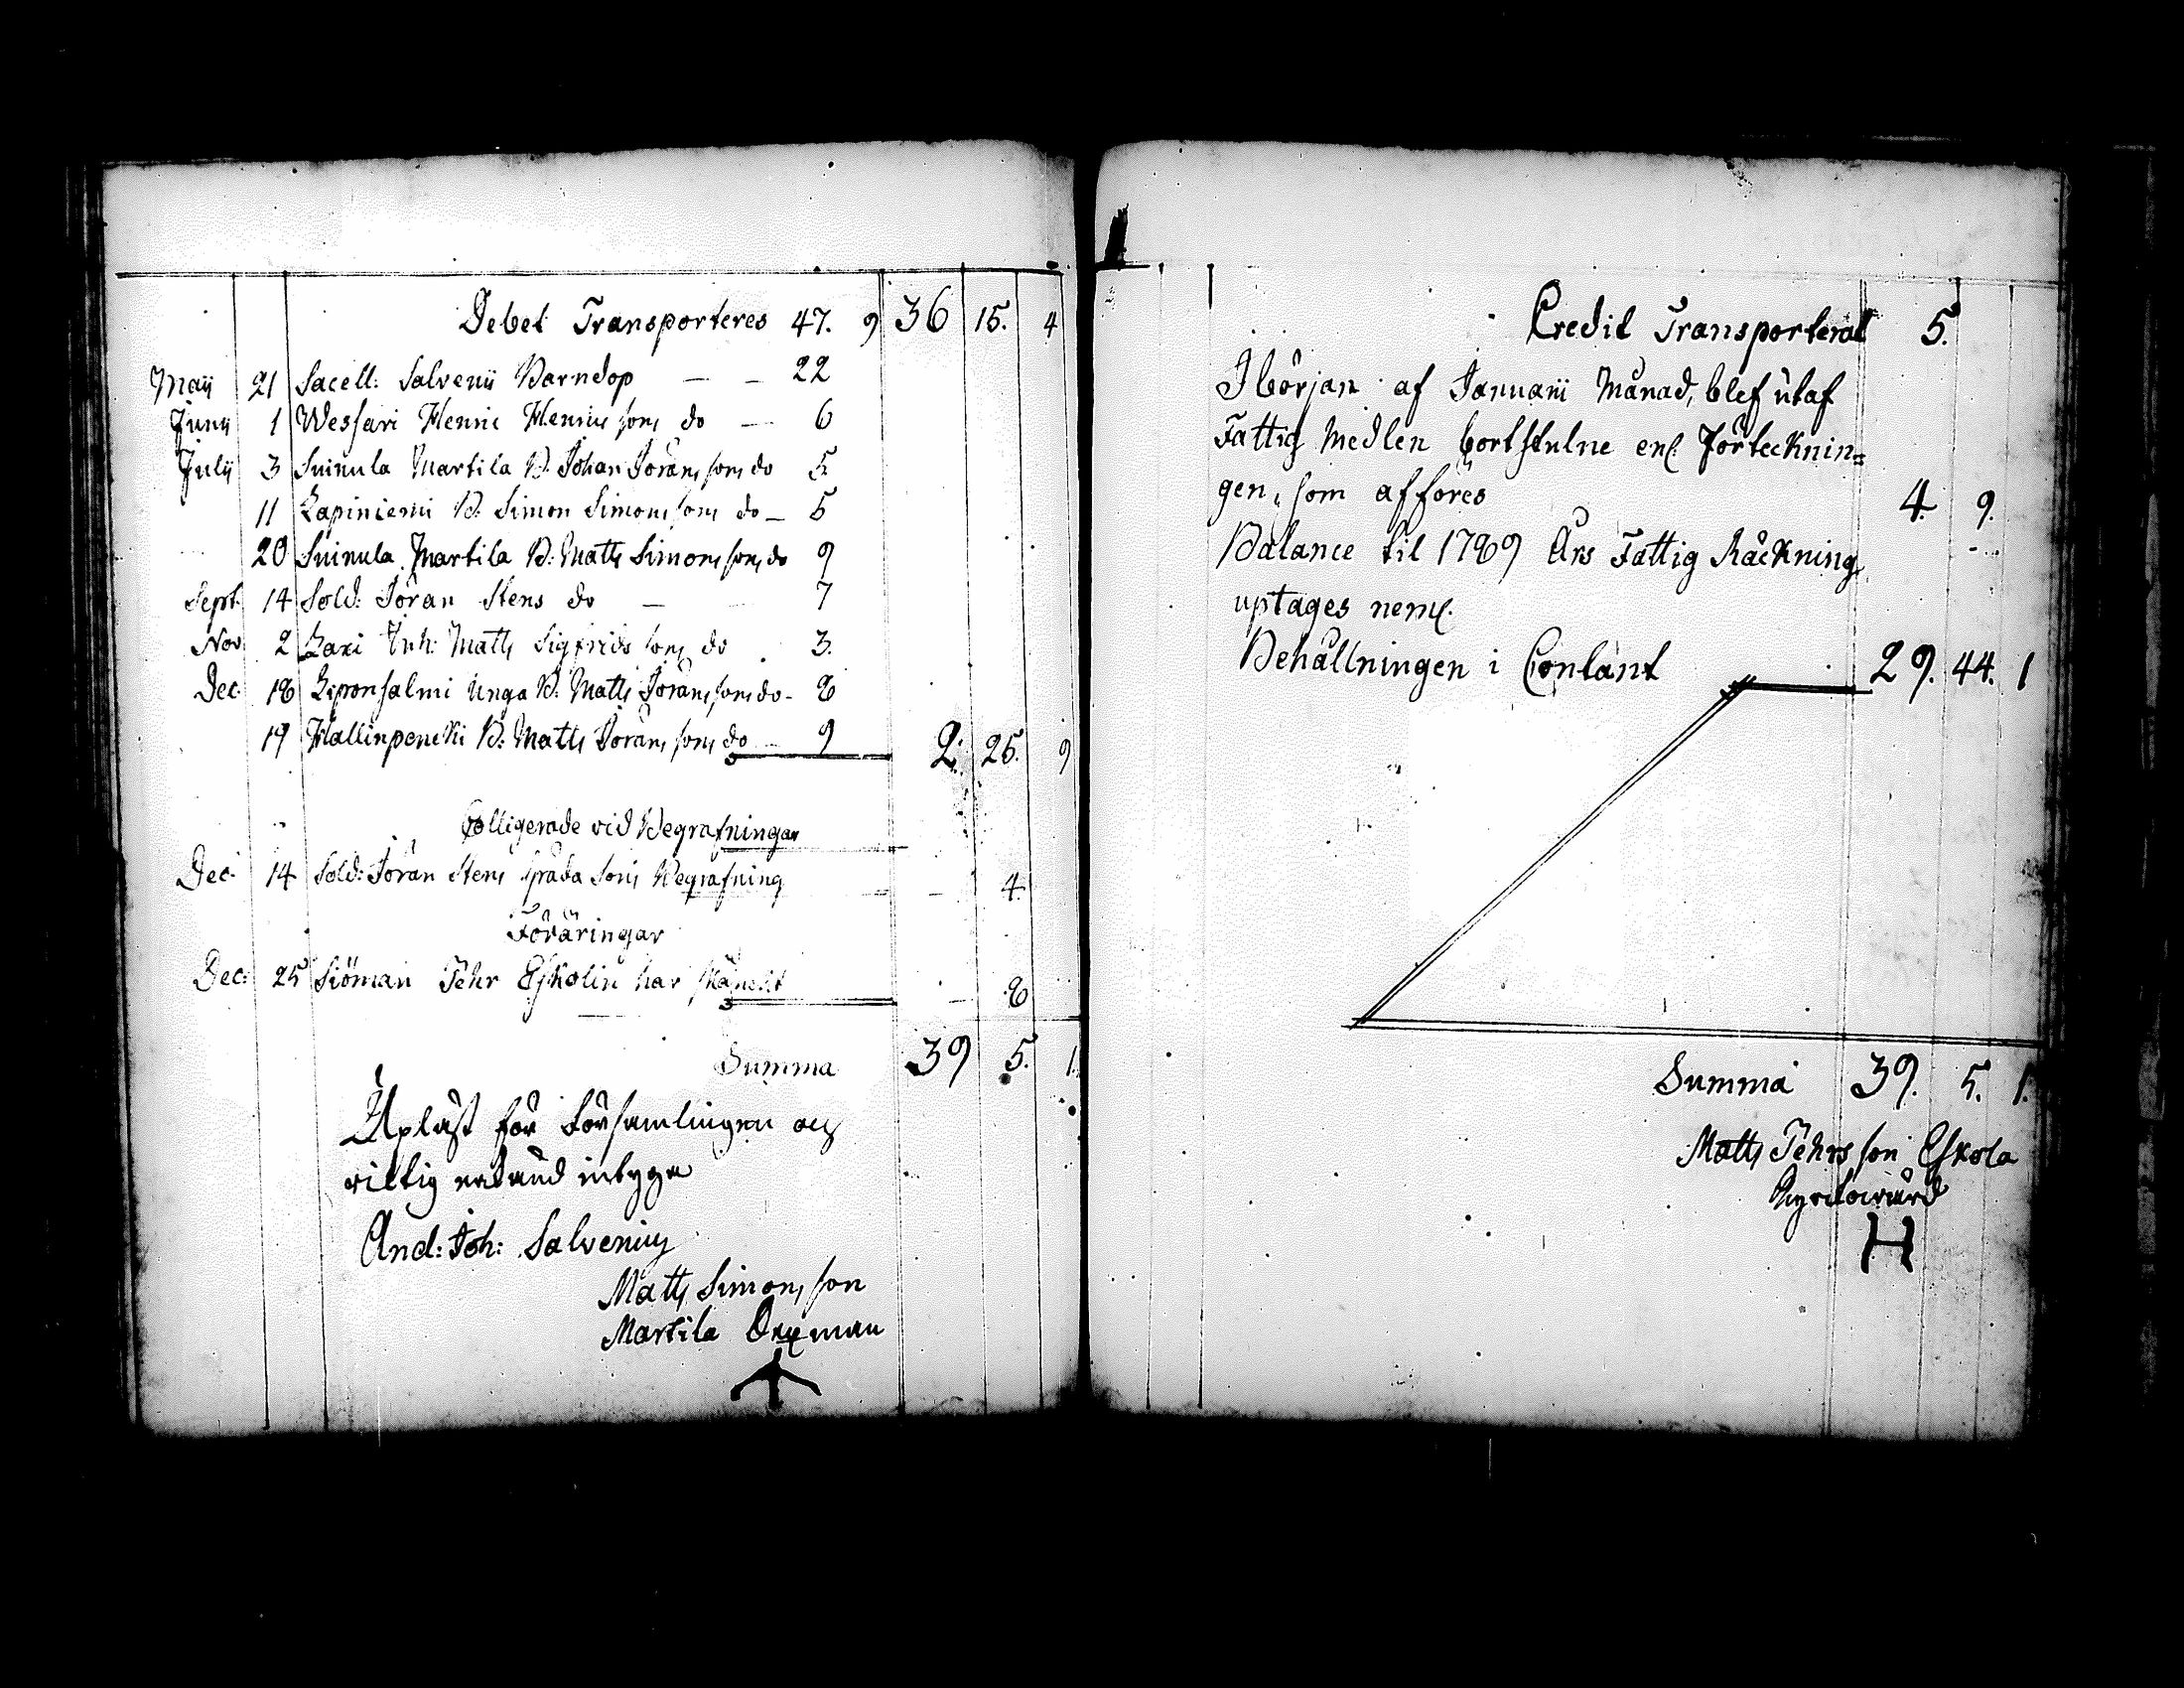 Debet Transporteres 47. 9 36 15. 4
Maij 21 Sacell: Salvenii Barndop — — 22
Junij 1 Wessari Henric Henrics sons do — 6
Julij 3 Suinula Martila B. Johan Jörans sons do 5
11 Lapiniemi B: Simon Simons sons do — 5
20 Suinula Martila B: Matts Simons sons do 9
Sept. 14 Sold: Jöran Stens do — 7
Nov. 2 Laxi Inh: Matts Sigfrids sons do 3.
Dec. 18 Liponsalmi Unga B. Matts Jörans sons do - 8
19 Hallinpencki B: Matts Jörans sons do — 9 2. 25. 9
Colligerade vid Begrafningar
Dec. 14 Sold: Jöran Stens späda Sons Begrafning — — 4.
Föräringar
Dec: 25 Siöman Pehr Eskolin har skänckt — 8
Summa 39 5. 1.
Upläst för Församlingen och
riktig erkänd intyga
And: Joh: Salvenius
Matts Simons son
Martila Sexman
Credit Transporterat 5.
I början af Januarii Månad, blef utaf
Fattig Medlen bortstulne enl. Förtecknin=
gen, som afföres 4. 9.
Balance til 1789 Års Fattig Räckning
uptages neml.
Behållningen i Contant 29. 44. 1
Summa 39. 5. 1.
Matts Pehrs son Eskola
Kyrckowärd
H